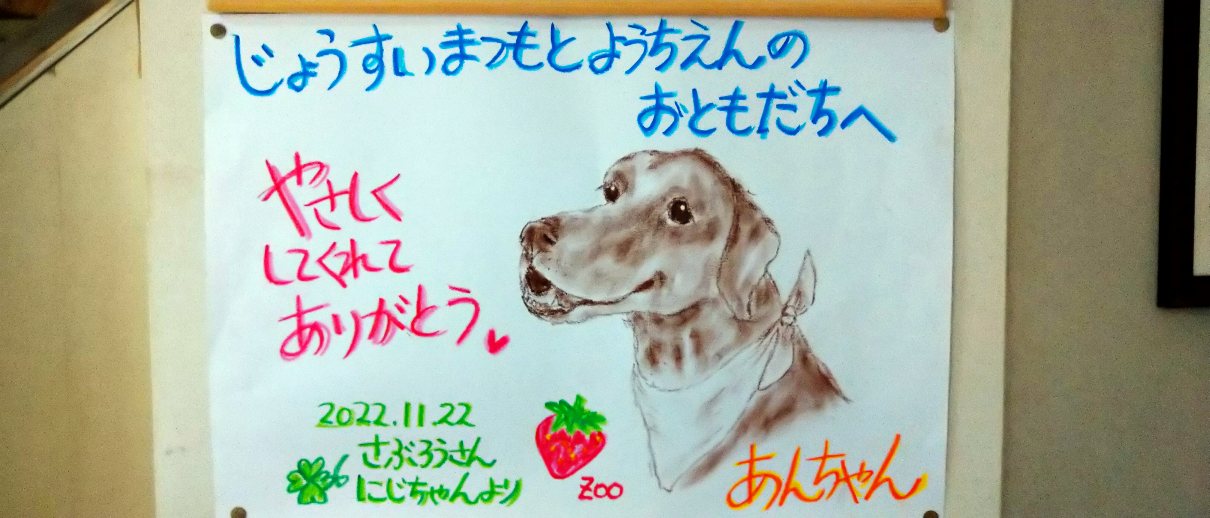 じょうすいまつもとようちえんの
おともだちへ
やさしく
してくれて
ありがとう
2022.11.22
さぶろうさん
にじちゃんより
Zoo
あんちゃん